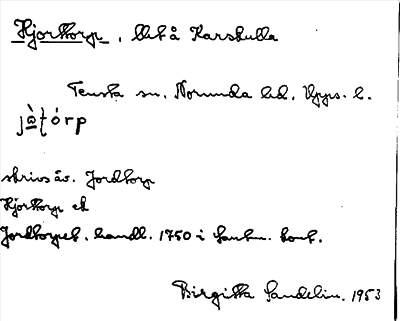 Hjorttorp, lht å Karskulla
Tensta sn. Norunda hd. Upps. l.
jà̱ṭórp
skrivs äv. Jordtorp
Hjorttorp ek
Jordtorpet. handl. 1750 i Lantm. kont.
Birgitta Sandelin. 1953